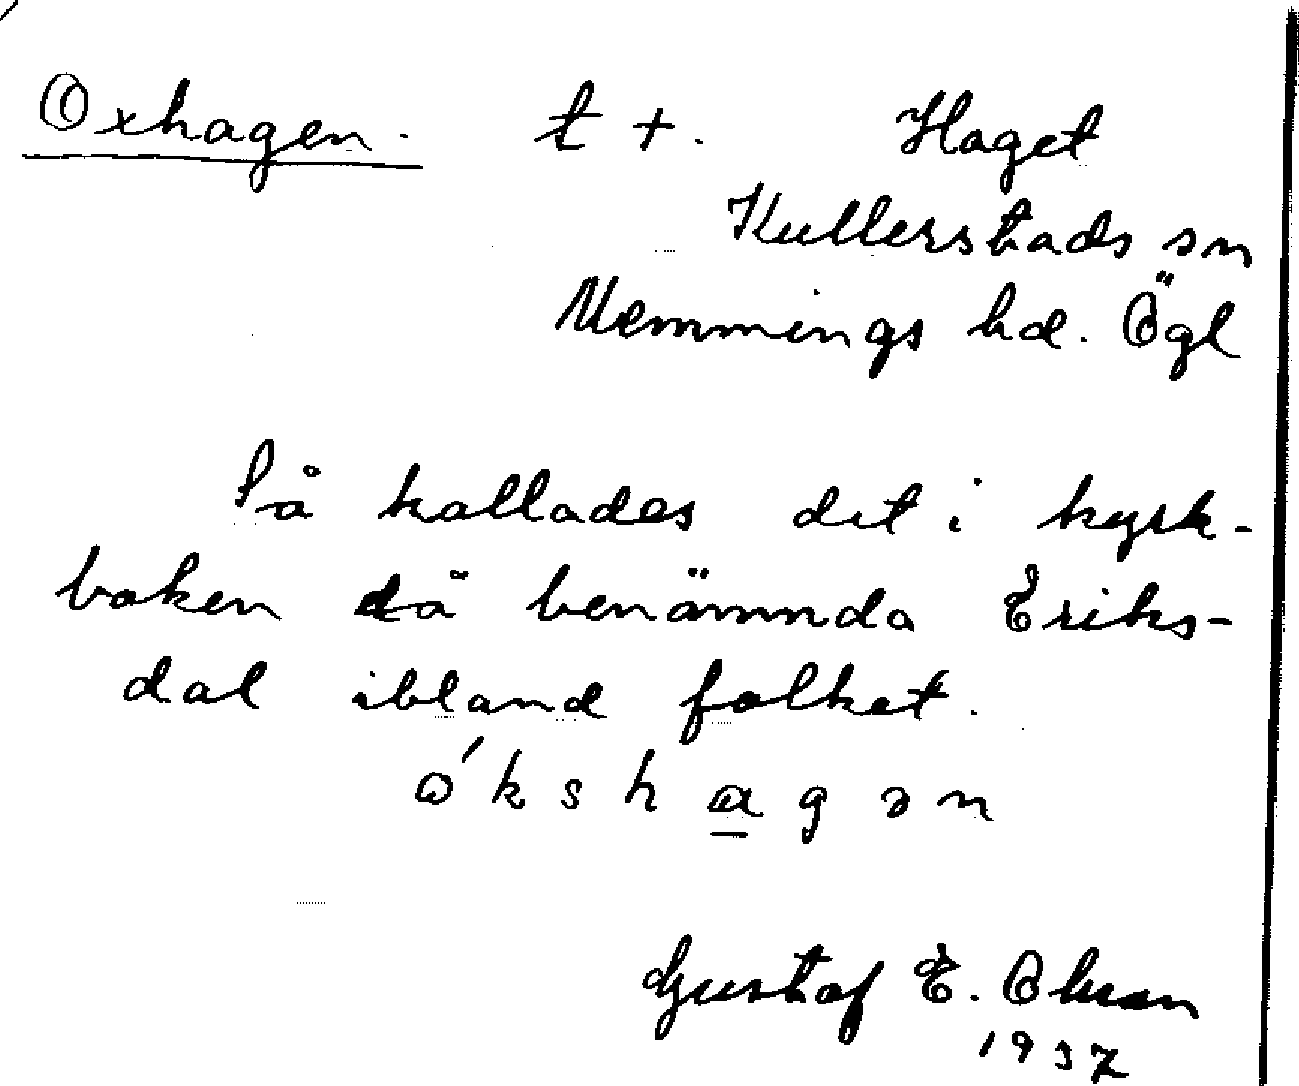 Oxhagen. t +. Haget
Kullerstads sn
Memmings hd. Ögl
Så kallades det i kyrk-
boken då benämnda Eriks-
dal ibland folket.
ó k s h a g ə n
Gustaf E. Olsson
1937